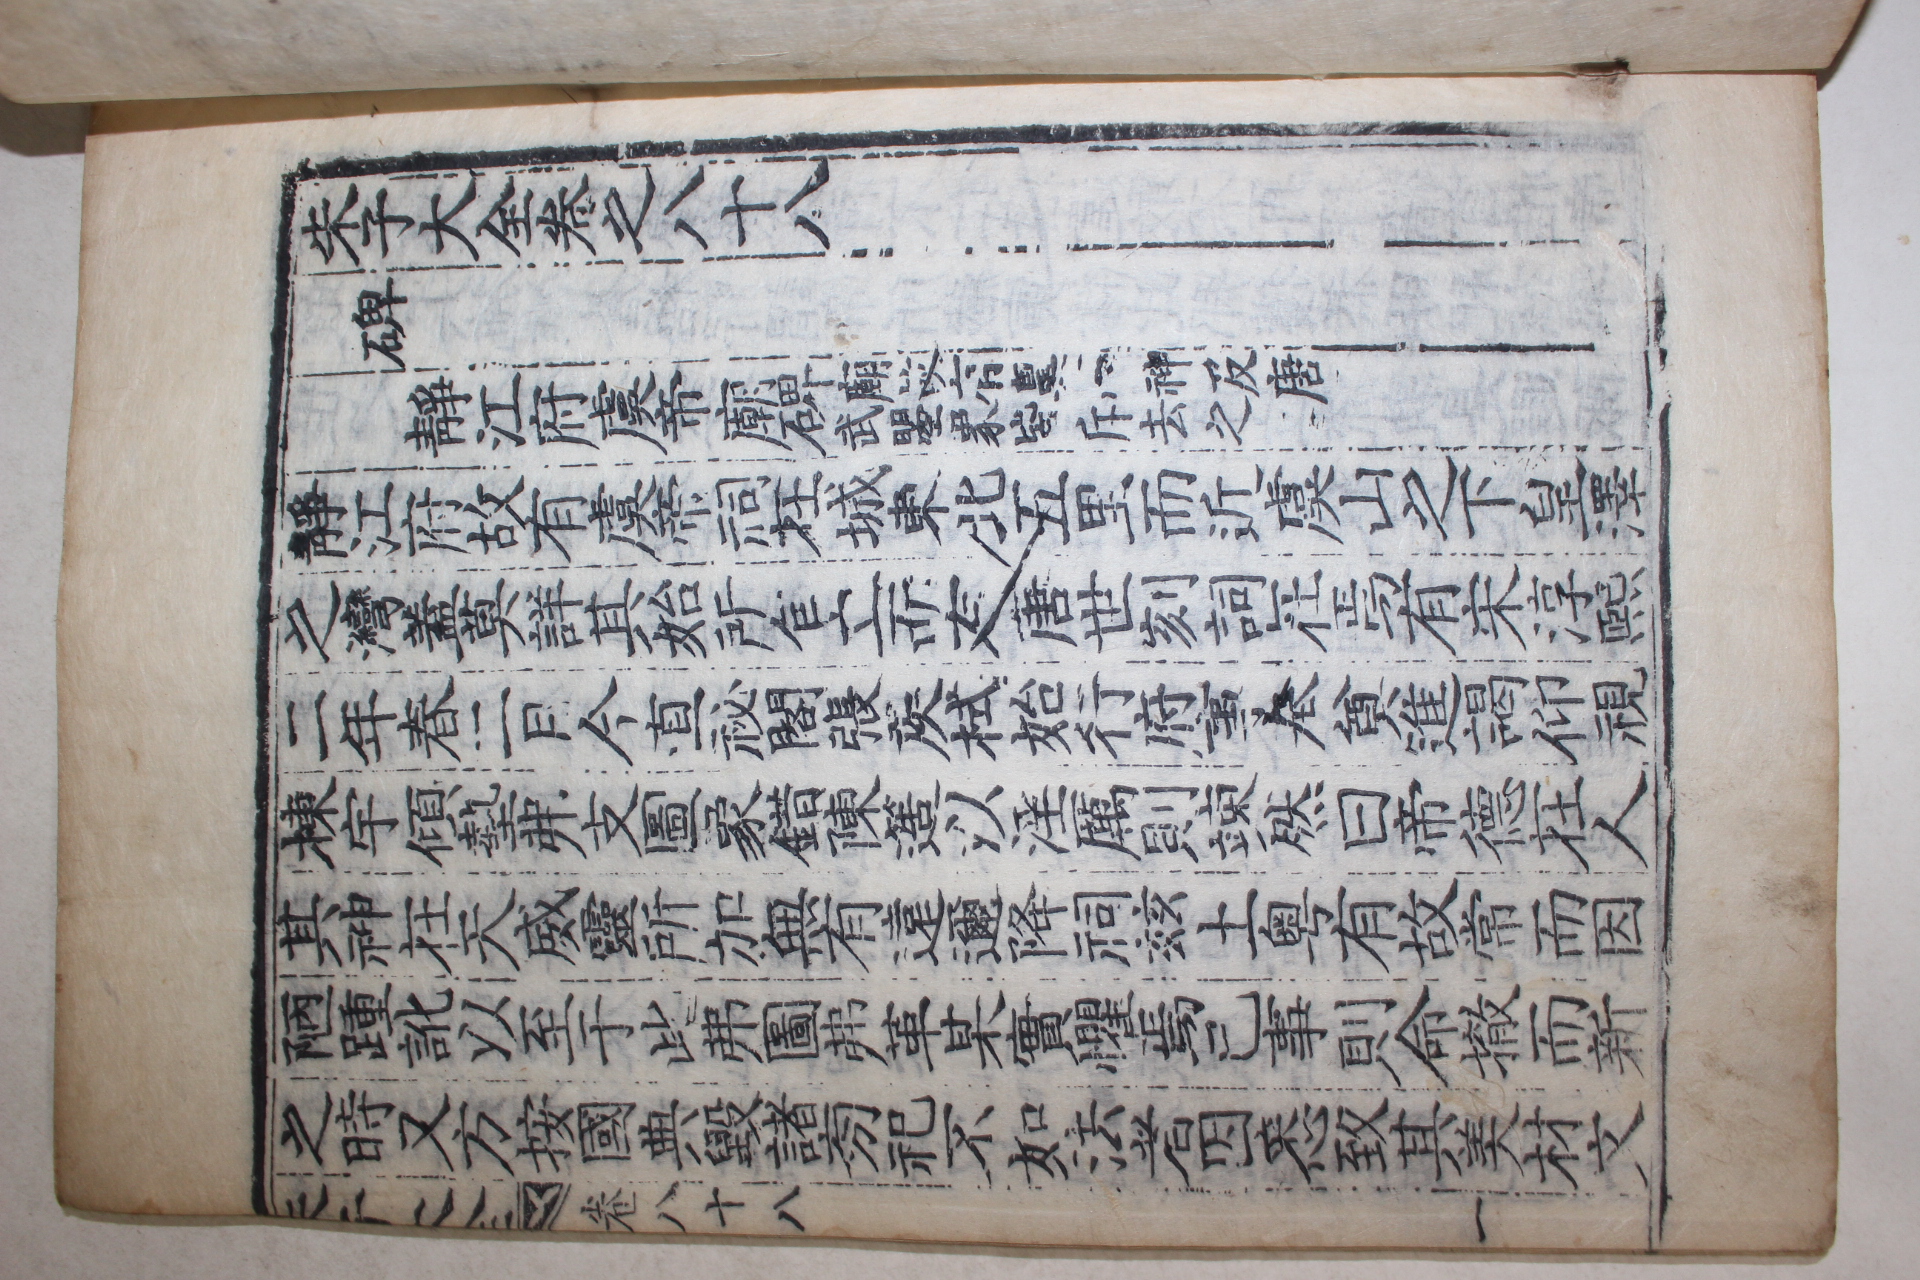 朱子大全卷之八十八
碑
靜江府虞帝廟碑
廟故有 神及唐
武曌象皆斥去之
靜江府故有虞帝祠在城東北五里而近虞山之下皇澤
之灣蓋莫詳其始所作之而有唐世刻詞在焉有宋淳熙
二年春二月今直祕閣張侯栻始行府事奉奠進謁仰視
棟宇傾墊弗支圖象錯陳簉以淫厲則竦然曰帝德在人
其神在天威靈所加無有遠邇降祠茲土粤有故常而因
陋踵訛以至于此弗圖弗革某實懼焉已事則命撤而新
之時又方按國典毀諸旁祀不如法者因悉致其美材文
朱子大全
卷八十八
一